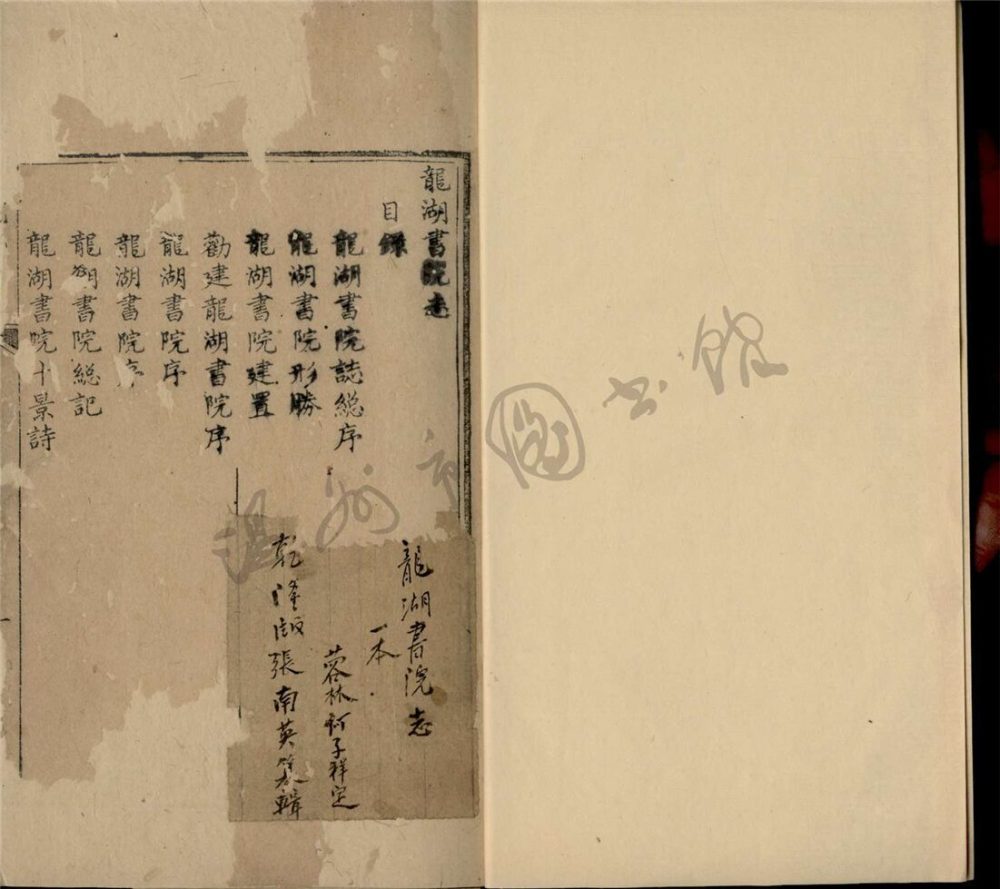 龍湖書院志
目錄
龍湖書院誌總序
龍湖書院形勝
龍湖書院建置
勸建龍湖書院序
龍湖書院序
龍湖書院序
龍湖書院總記
龍湖書院十景詩
龍湖書院志
一本
蓉林何子祥定
乾隆版張南英纂輯
溫州市圖書館